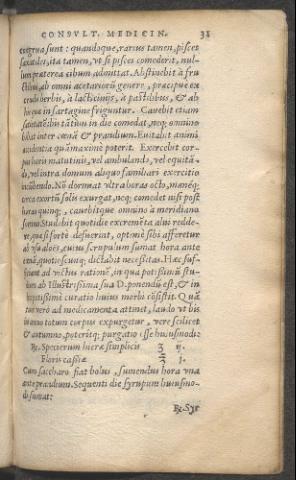 CONSVLT. MEDICIN. 31
exigua sunt: quandoque, rarius tamen, pisces
saxatiles, ita tamen, vt si pisces comederit, nul-
lum præterea cibum admittat. Abstinebit à fru
ctibus, ab omni acetariorũ genere, præcipue ex
crudis herbis, à lacticinijs, à pastilibus, & ab
his quæ in sartagine friguntur. Cauebit etiam
satietatẽ, bis tãtũ in die comedat, neq; omnino
bibat inter cœnã & prandium. Euitabit animi
mœrorẽ quã maximè poterit. Exercebit cor-
pus horis matutinis, vel ambulando, vel equitã-
do, vel intra domum aliquo familiari exercitio
incũbendo. Nõ dormiat vltra horas octo, maneq;
circa exortũ solis exurgat, neq; comedet nisi post
horas quinq;, cauebitque omnino à meridiano
somno. Studebit quotidie excremẽta alui redde-
re, quæ si fortè defuerint, optimè sibi afferetur
ab vsu aloës, cuius scrupulum sumat hora ante
cœnã, quotiescunq; dictabit necessitas. Hæc suf-
ficiant ad victus rationẽ, in qua potissimũ stu-
dium ab Illustrissima sua D. ponendũ est, & in
qua potissimũ curatio huius morbi cõsistit. Quã
tum verò ad medicamenta attinet, laudo vt bis
in anno totum corpus expurgetur, vere scilicet
& autumno, poteritq; purgatio esse huiusmodi:
℞. Specierum hieræ simplicis ʒ ij.
Floris cassiæ ℥ j.
Cum saccharo fiat bolus, sumendus hora vna
ante prandium. Sequenti die syrupum huiusmo-
di sumat:
℞. Syr